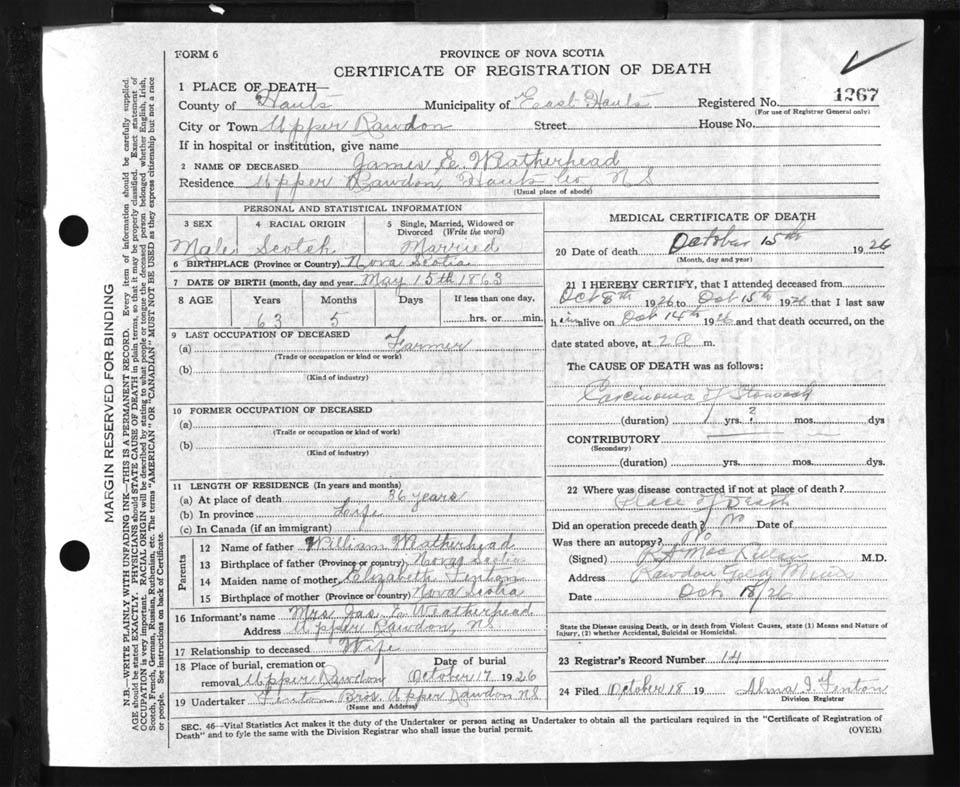 FORM 6
PROVINCE OF NOVA SCOTIA
CERTIFICATE OF REGISTRATION OF DEATH
1 PLACE OF DEATH—
County of Hants Municipality of East Hants Registered No. 1267
(For use of Registrar General only)
City or Town Upper Rawdon Street House No.
If in hospital or institution, give name
2 NAME OF DECEASED James E. Weatherhead
Residence Upper Rawdon, Hants Co NS
(Usual place of abode)
PERSONAL AND STATISTICAL INFORMATION
3 SEX 4 RACIAL ORIGIN 5 Single, Married, Widowed or Divorced (Write the word)
Male Scotch Married
6 BIRTHPLACE (Province or Country) Nova Scotia
7 DATE OF BIRTH (month, day and year) May 15th 1863
8 AGE Years Months Days If less than one day,
63 5 hrs. or min.
9 LAST OCCUPATION OF DECEASED
(a) Farmer
(Trade or occupation or kind of work)
(b)
(Kind of industry)
10 FORMER OCCUPATION OF DECEASED
(a)
(Traite or occupation or kind of work)
(b)
(Kind of industry)
11 LENGTH OF RESIDENCE (In years and months)
(a) At place of death 36 years
(b) In province Life
(c) In Canada (if an immigrant)
Parents
12 Name of father William Weatherhead
13 Birthplace of father (Province or country) Nova Scotia
14 Maiden name of mother Elizabeth Fenton
15 Birthplace of mother (Province or country) Nova Scotia
16 Informant's name Mrs. Jas. E. Weatherhead
Address Upper Rawdon, NS
17 Relationship to deceased Wife
18 Place of burial, cremation or removal Upper Rawdon Date of burial October 17 1926
19 Undertaker Fenton Bros. Upper Rawdon NS
(Name and Address)
MEDICAL CERTIFICATE OF DEATH
20 Date of death October 15th 1926
(Month, day and year)
21 I HEREBY CERTIFY, that I attended deceased from
Oct 8th 1926 to Oct 15th 1926 that I last saw
him alive on Oct 14th 1926 and that death occurred, on the
date stated above, at 2 a m.
The CAUSE OF DEATH was as follows:
Carcinoma of Stomach
(duration) yrs. ? mos. dys
CONTRIBUTORY
(Secondary)
(duration) yrs. mos. dys.
22 Where was disease contracted if not at place of death?
Place of Death
Did an operation precede death? No Date of
Was there an autopsy? No
(Signed) M.D.
Address Rawdon Gold Mines
Date Oct 18/26
State the Disease causing Death, or in death from Violent Causes, state (1) Means and Nature of Injury, (2) whether Accidental, Suicidal or Homicidal.
23 Registrar's Record Number 14
24 Filed October 18 19 Alma I. Fenton
Division Registrar
SEC. 46—Vital Statistics Act makes it the duty of the Undertaker or person acting as Undertaker to obtain all the particulars required in the "Certificate of Registration of
Death" and to fyle the same with the Division Registrar who shall issue the burial permit.
(OVER)
MARGIN RESERVED FOR BINDING
N.B.—WRITE PLAINLY, WITH UNFADING INK—THIS IS A PERMANENT RECORD. Every item of information should be carefully supplied.
AGE should be stated EXACTLY. PHYSICIANS should STATE CAUSE OF DEATH in plain terms, so that it may be properly classified. Exact statement of
OCCUPATION is very important. RACIAL ORIGIN will be described by stating to what people or tongue the deceased person belonged whether English, Irish,
Scotch, French, German, Russian, Ruthenian, etc. The terms "AMERICAN" OR "CANADIAN" MUST NOT BE USED as they express citizenship but not a race
or people. See instructions on back of Certificate.